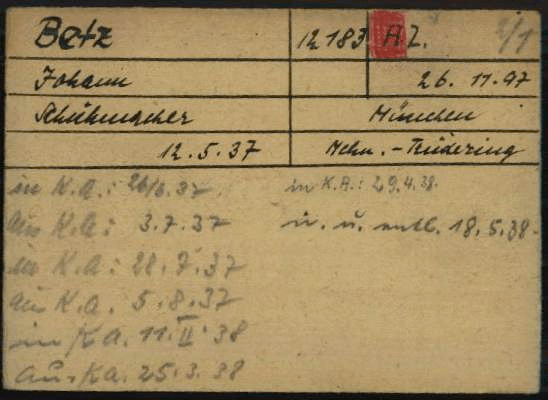 Betz 12183 AZ. 2/1
Johann 26. 11. 97
Schuhmacher München
12. 5. 37 Mchn. - Trudering
in K.A.: 26/6. 37 in K.A.: 29.4.38.
aus K.A.: 3.7.37 u. entl. 18.5.38.
in K.A.: 28.7.37
aus K.A. 5.8.37
in KA. 11. II. 38
aus KA. 25.3.38